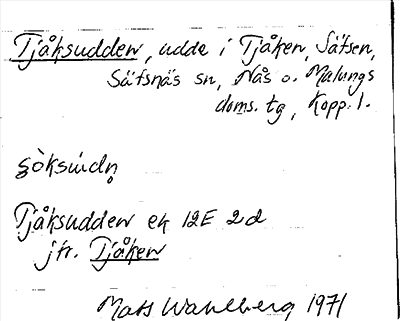 Tjåksudden, udde i Tjåken, Säfsen,
Säfsnäs sn, Nås o. Malungs
doms. tg, Kopp. l.
Tjåksudden ek 12E 2d
jfr. Tjåken
Mats Wahlberg 1971